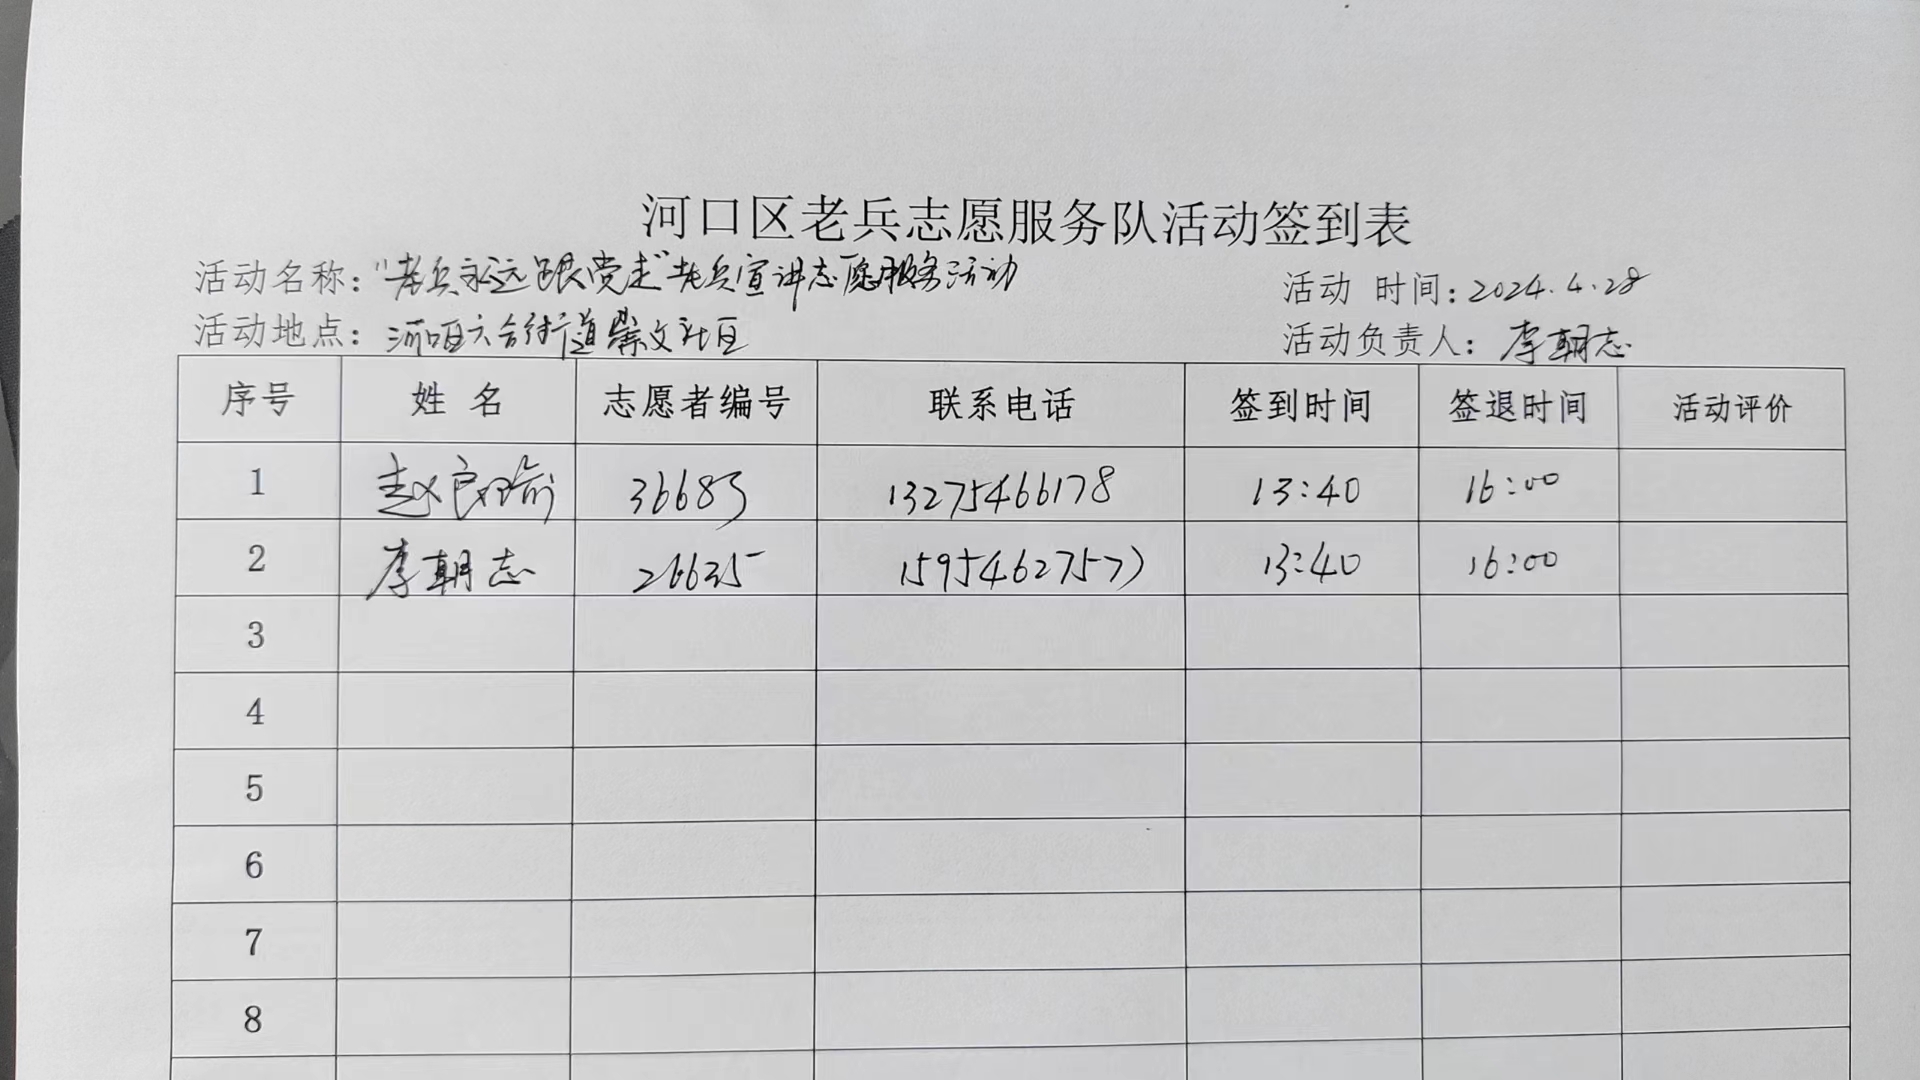 河口区老兵志愿服务队活动签到表
活动名称："老兵永远跟党走"老兵宣讲志愿服务活动
活动时间：2024.4.28
活动地点：河口区六合街道崇文社区
活动负责人：李朝志
序号 姓名 志愿者编号 联系电话 签到时间 签退时间 活动评价
1 赵良瑜 36683 13275466178 13:40 16:00
2 李朝志 26635 15954627577 13:40 16:00
3
4
5
6
7
8